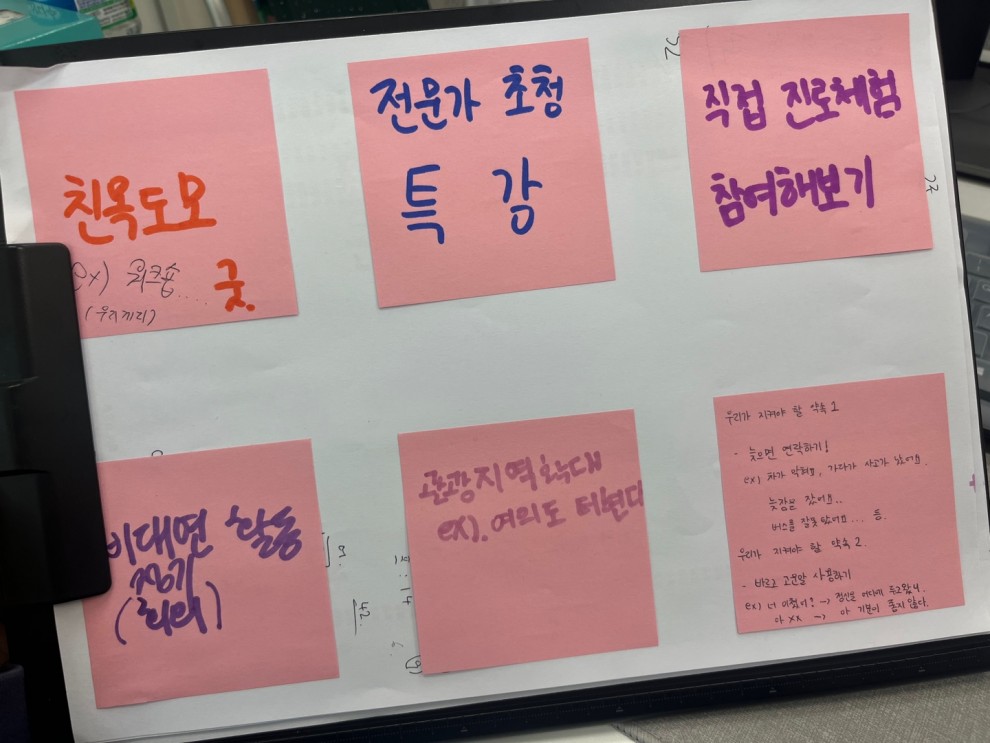 친목도모
ex) 워크숍....
굿.
(우리끼리)
전문가 초청
특 강
직접 진로체험
참여해보기
비대면 활동
관광지역확대
ex). 여의도
우리가 지켜야 할 약속 1
- 늦으면 연락하기!
ex) 차가 막혀요, 가다가 사고가 났어요.
늦잠을 잤어요..
버스를 잘못 탔어요... 등.
우리가 지켜야 할 약속 2.
- 바르고 고운말 사용하기
ex) 너 미쳤어? → 정신을 어디에 두고왔니.
아 XX → 아 기분이 좋지 않다.
32
42.